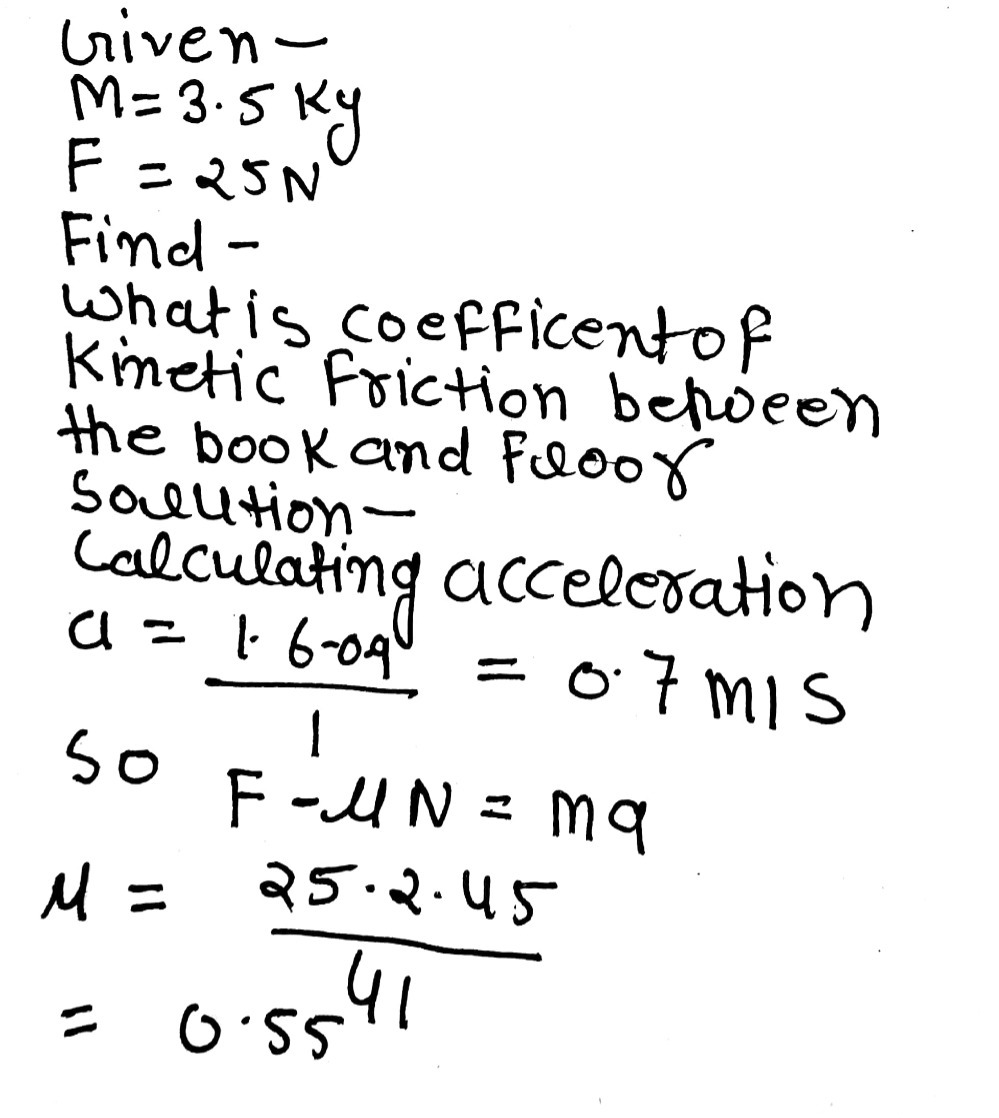 Given -
M = 3.5 Kg
F = 25 N
Find -
What is coefficent of
Kinetic Friction between
the book and Floor
Solution -
Calculating acceleration
a = 1.6-09 / 1 = 0.7 m/s
So
F - μN = ma
μ = 25-2.45 / 41
= 0.55